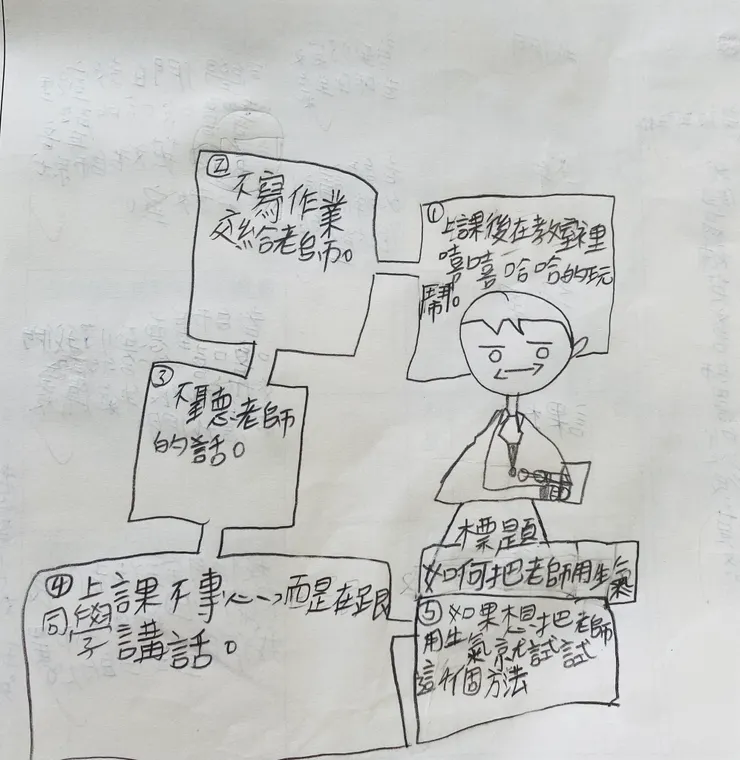 標題
如何把老師用生氣
① 上課後在教室裡
嘻嘻哈哈的玩
鬧。
② 不寫作業
交給老師。
③ 不聽老師
的話。
④ 上課不專心,而是在跟
同學講話。
⑤ 如果想把老師
用生氣就試試
這個方法